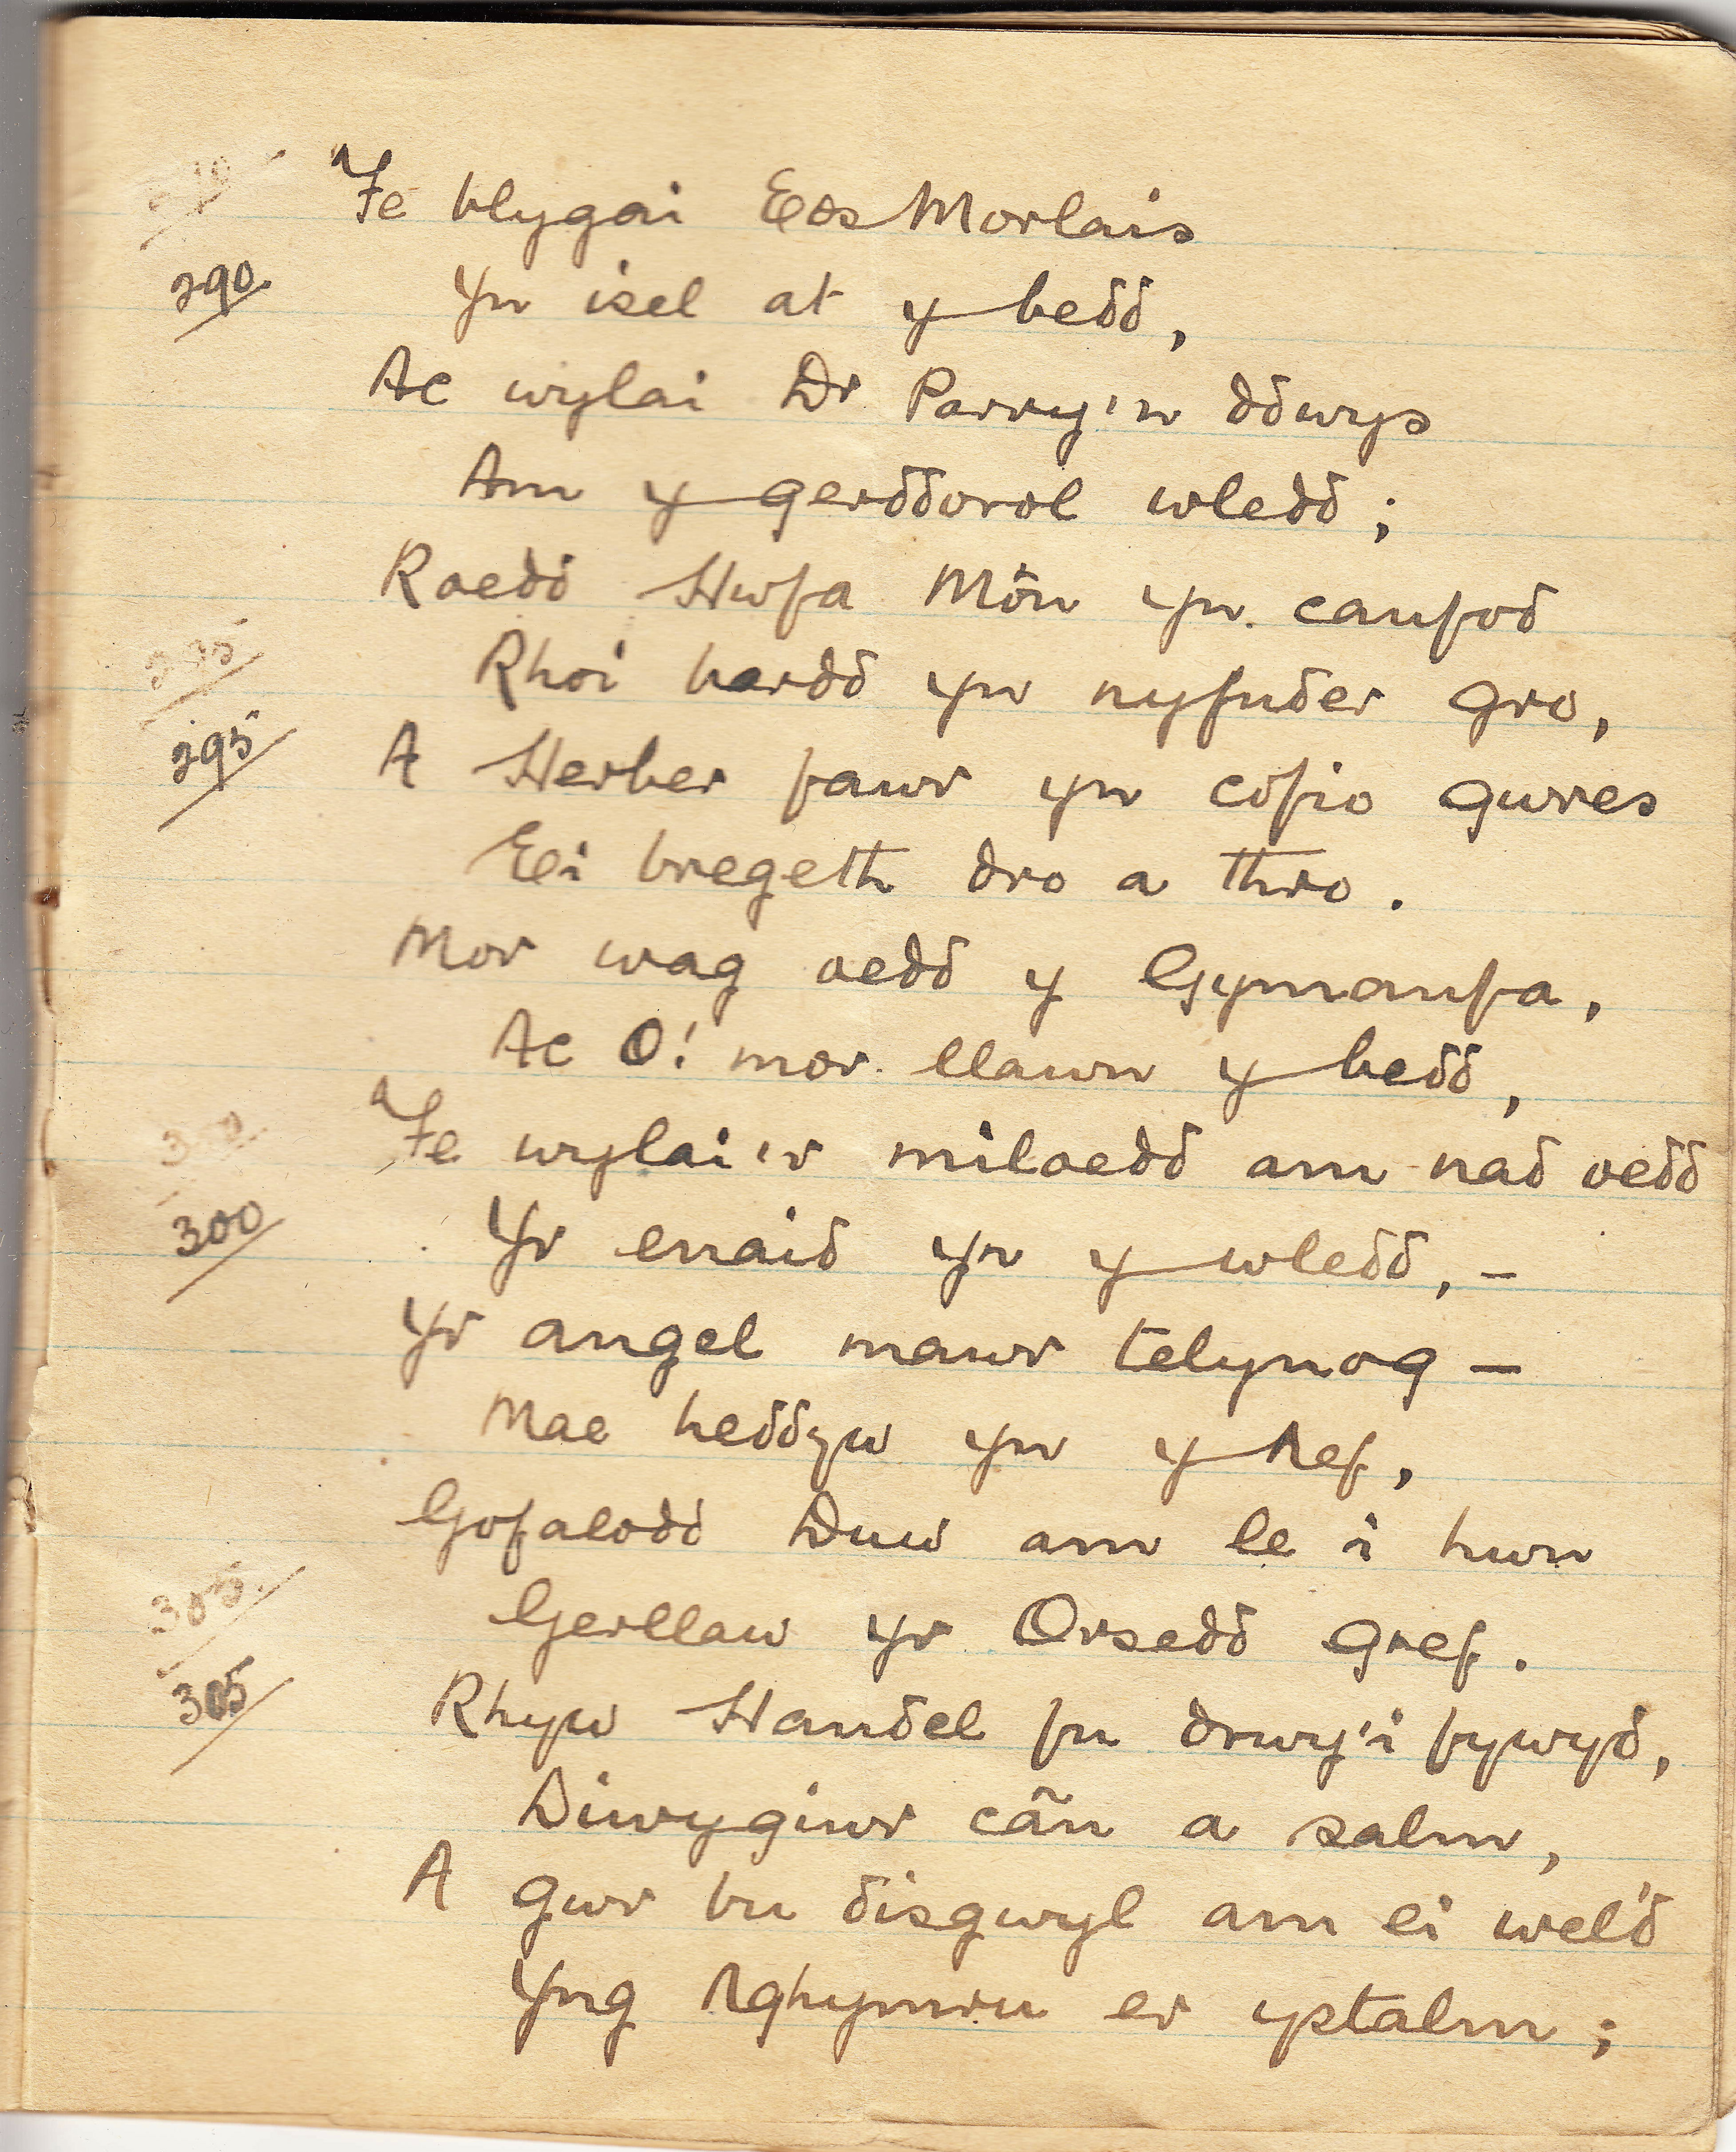 Fe blygai Eos Morlais
290. Yn isel at y bedd,
Ac wylai Dr Parry'n ddwys
Am y gerddorol wledd;
Roedd Hwfa Môn yn canfod
Rhoi bardd yn nyfnder gro,
295 A Herber fawr yn cofio gwres
Ei bregeth dro a thro.
Mor wag oedd y Gymanfa,
Ac O! mor llawn y bedd,
Fe wylai'r miloedd am nad oedd
300 Yr enaid yn y wledd, –
Yr angel mawr telynog –
Mae heddyw yn y Nef,
Gofalodd Duw am le i hwn
305. Gerllaw yr Orsedd gref.
305 Rhyw Handel fu drwy'i fywyd,
Diwygiwr cân a salm,
A gwr bu disgwyl am ei wel'd
Yng Nghymru er ystalm;